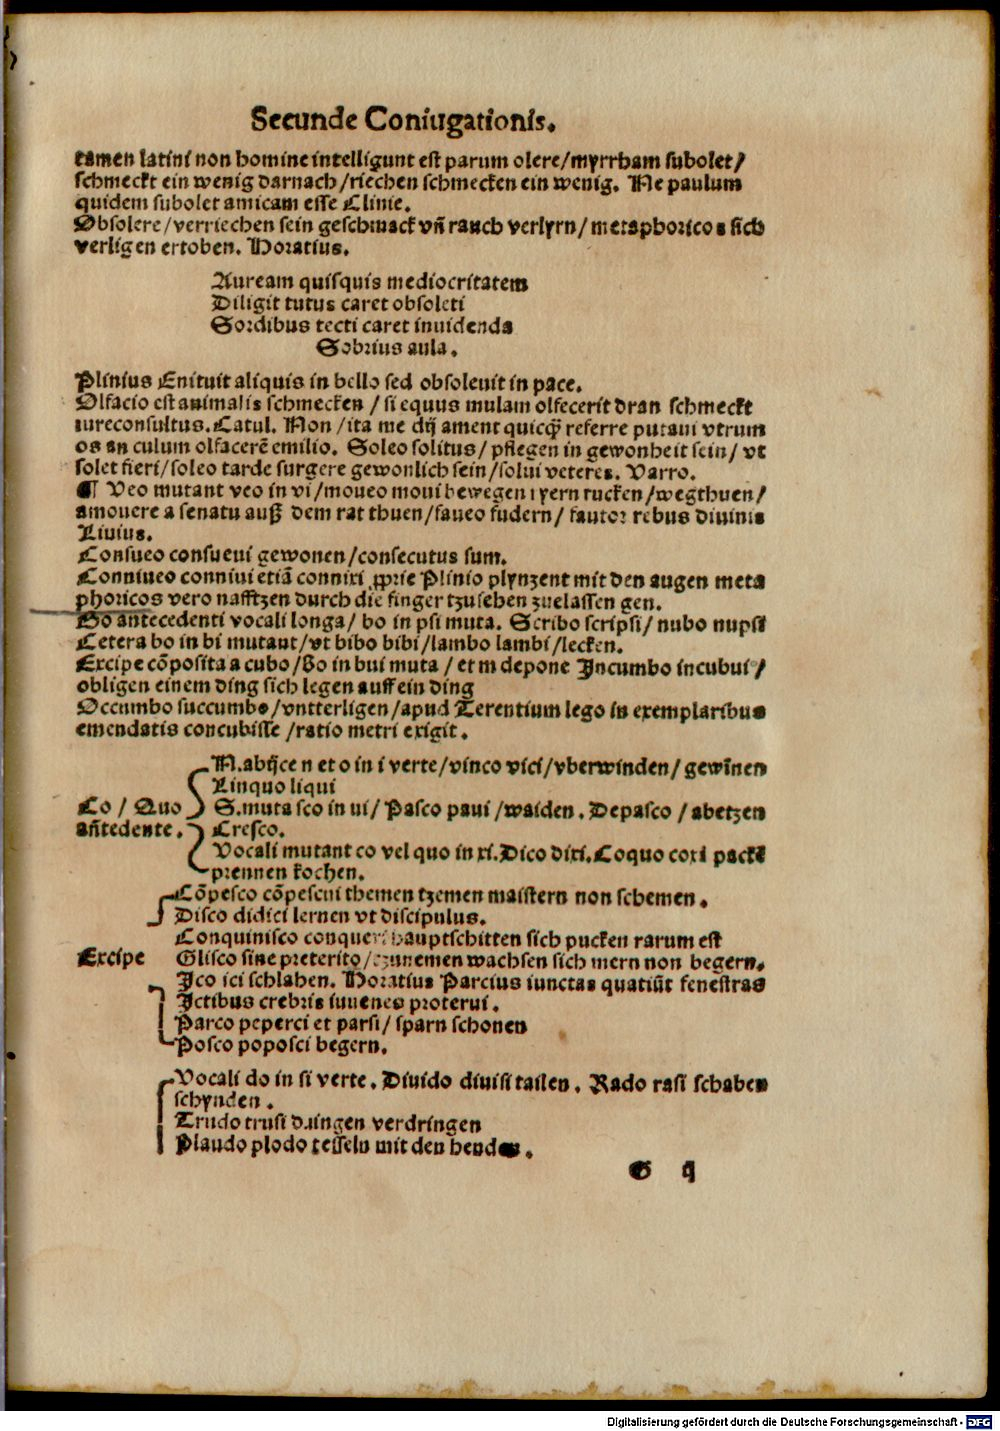 Secunde Coniugationis.
tamen latini non homine intelligunt est parum olere/myrrham subolet/
schmeckt ein wenig darnach/riechen schmecken ein wenig. Ne paulum
quidem subolet amicam esse Clinie.
Obsolere/verriechen sein geschmack vñ rauch verlyrn/metaphoricos sich
verligen ertoben. Horatius.
Auream quisquis mediocritatem
Diligit tutus caret obsoleti
Sordibus tecti caret inuidenda
Sobrius aula.
Plinius Enituit aliquis in bello sed obsoleuit in pace.
Olfacio est animalis schmecken / si equus mulam olfecerit dran schmeckt
iureconsultus. Catul. Non /ita me dij ament quicq̃ referre putaui vtrum
os an culum olfacerē emilio. Soleo solitus/ pflegen in gewonheit sein/ vt
solet fieri/soleo tarde surgere gewonlich sein/solui veteres. Varro.
¶ Veo mutant veo in vi/moueo moui bewegen yern rucken/wegthuen/
amouere a senatu auß dem rat thuen/faueo fudern/ fautor rebus diuinis
Liuius.
Consueo consueui gewonen/consecutus sum.
Conniueo conniui etiã connixi ꝓprie Plinio plynzent mit den augen meta
phoricos vero nafftzen durch die finger tzusehen zuelassen gen.
Bo antecedenti vocali longa/ bo in psi muta. Scribo scripsi/ nubo nupsi
Cetera bo in bi mutant/vt bibo bibi/lambo lambi/lecken.
Excipe cōposita a cubo/Bo in bui muta / et m depone Incumbo incubui/
obligen einem ding sich legen auff ein ding
Occumbo succumbo/vntterligen/apud Terentium lego in exemplaribus
emendatis concubisse /ratio metri exigit.
N. abijce n et o in i verte/vinco vici/vberwinden/ gewīnen
Linquo liqui
Co / Quo S. muta sco in ui/ Pasco paui /waiden. Depasco / abetzen
añtedente. Cresco.
Vocali mutant co vel quo in xi. Dico dixi. Coquo coxi pachē
prennen kochen.
Cōpesco cōpescui themen tzemen maistern non schemen.
Disco didici lernen vt discipulus.
Conquinisco conquexi hauptschitten sich pucken rarum est
Excipe Glisco sine preterito/ tzunemen wachsen sich mern non begern.
Ico ici schlahen. Horatius Parcius iunctas quatiūt fenestras
Ictibus crebris iuuenes proterui.
Parco peperci et parsi/ sparn schonen
Posco poposci begern.
Vocali do in si verte. Diuido diuisi tailen. Rado rasi schaben
schynden.
Trudo trusi dringen verdringen
Plaudo plodo tesseln mit den henden.
G ij
Digitalisierung gefördert durch die Deutsche Forschungsgemeinschaft - DFG